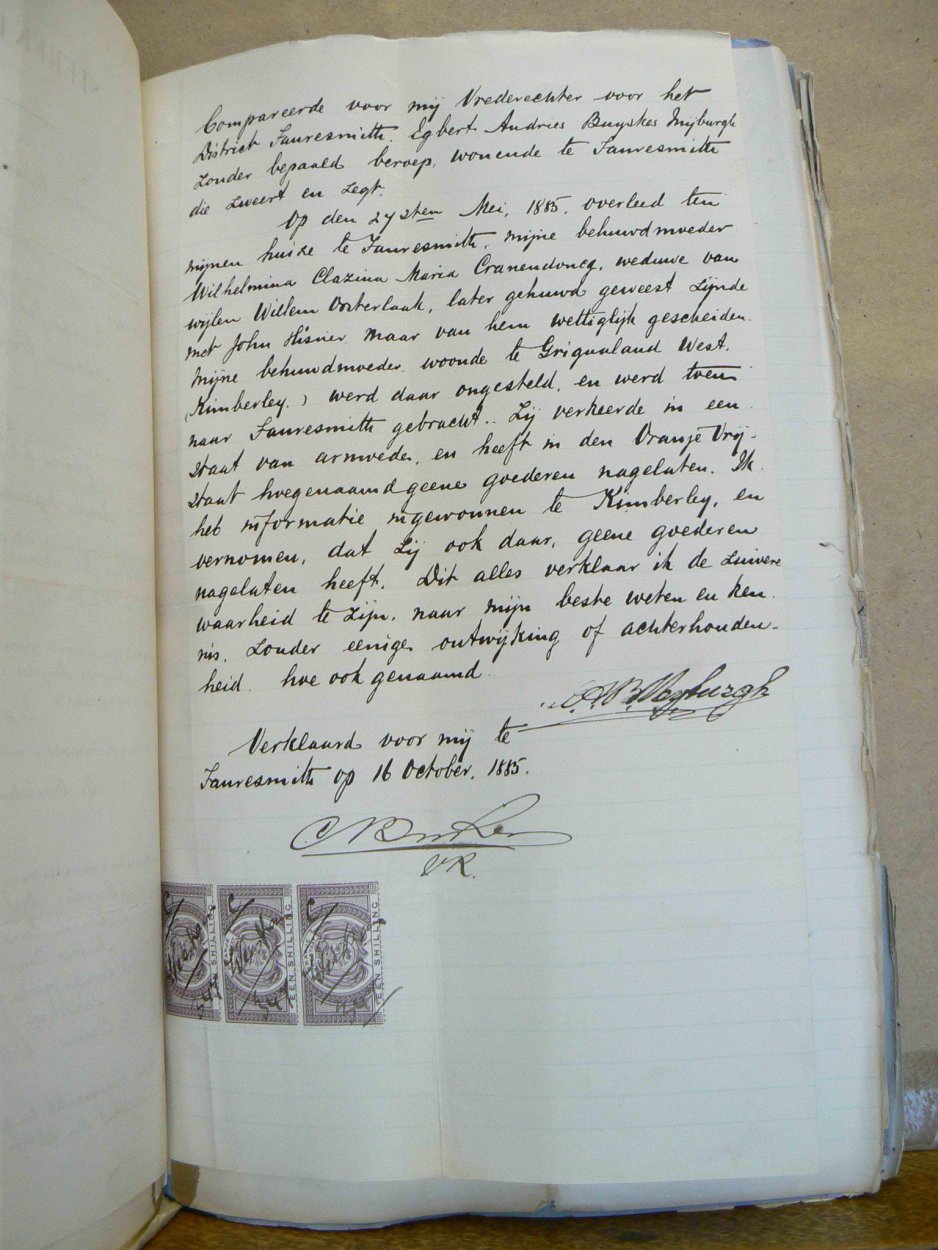 Compareerde voor mij Vrederechter voor het
District Fauresmith, Egbert Andries Buyskes Mijburgh
zonder bepaald beroep, wonende te Fauresmith
die zweert en zegt.
Op den 27sten Mei, 1885, overleed ten
mijnen huize te Fauresmith, mijne behuwdmoeder
Wilhelmina Clazina Maria Cranendoncq, weduwe van
wijlen Willem Oosterlaak, later gehuwd geweest zijnde
met John Hisner, maar van hem wettiglijk gescheiden.
Mijne behuwdmoeder, woonde te Griqualand West,
(Kimberley.) werd daar ongesteld, en werd toen
naar Fauresmith gebracht. Zij verkeerde in een
staat van armoede, en heeft in den Oranje Vrij-
staat hoegenaamd geene goederen nagelaten. Ik
heb informatie ingewonnen te Kimberley, en
vernomen, dat zij ook daar, geene goederen
nagelaten heeft. Dit alles verklaar ik de zuivere
waarheid te zijn, naar mijn beste weten en ken-
nis, zonder eenige ontwijking of achterhouden-
heid hoe ook genaamd.
E.A.B. Myburgh
Verklaard voor mij te
Fauresmith op 16 October, 1885.
VR.
EEN SHILLING
EEN SHILLING